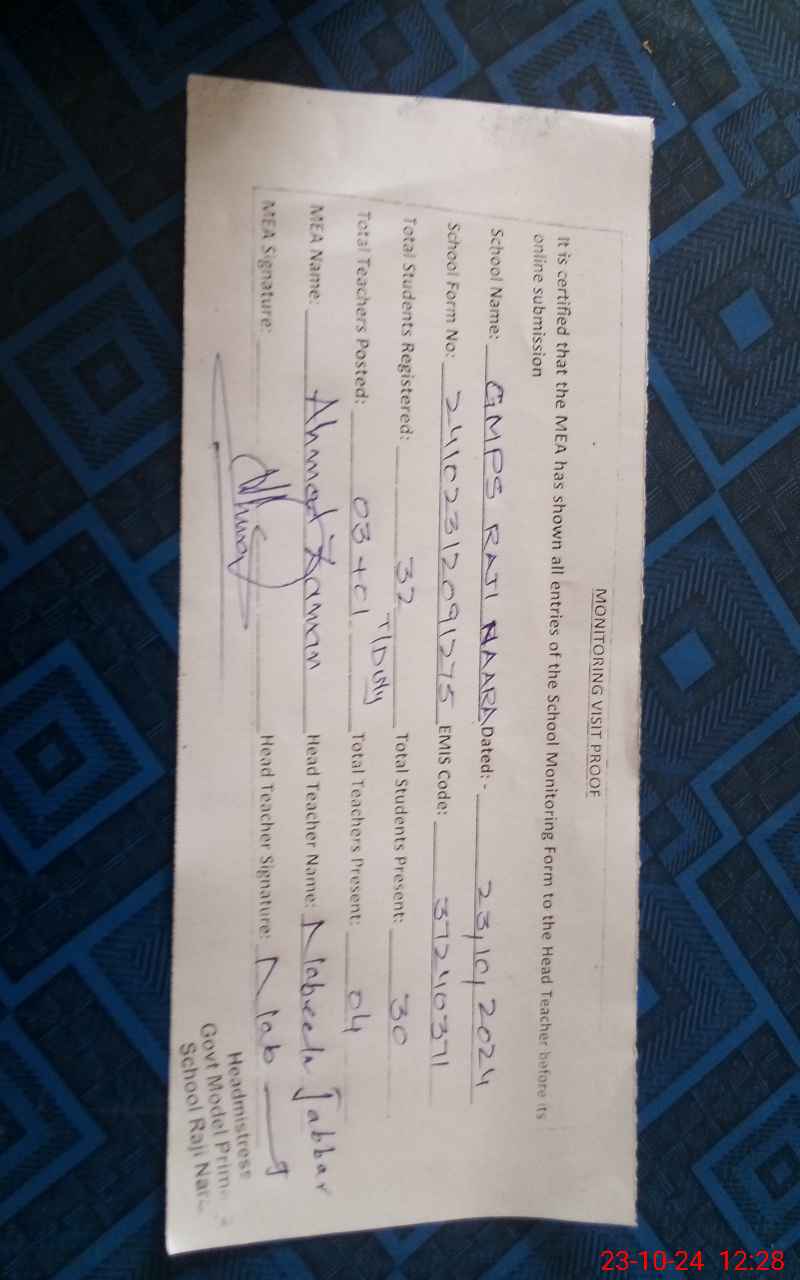 MONITORING VISIT PROOF
It is certified that the MEA has shown all entries of the School Monitoring Form to the Head Teacher before its
online submission
School Name: GMPS RAJI NAARA Dated: - 23/10/2024
School Form No: 24102312091275 EMIS Code: 37240371
Total Students Registered: 32 Total Students Present: 30
T/Duty
Total Teachers Posted: 03+01 Total Teachers Present: 04
MEA Name: Ahmad Zaman Head Teacher Name: Nabeela Jabbar
MEA Signature: Head Teacher Signature: Nab
Headmistress
Govt Model Prim
School Raji Nar
23-10-24 12:28